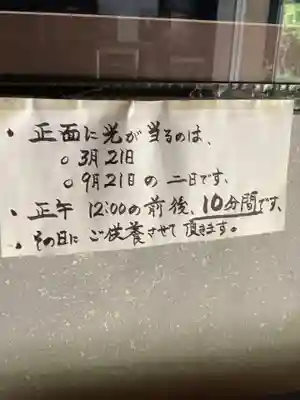 ・正面に光が当るのは、
○3月21日
○9月21日の二日です、
・正午12:00の前後、10分間です、
・その日にご供養させて頂きます。